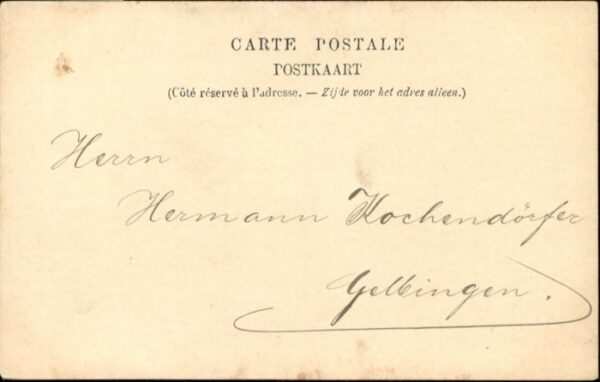 CARTE POSTALE
POSTKAART
(Côté réservé à l'adresse. — Zijde voor het adres alleen.)
Herrn
Hermann Kochendörfer
Gelbingen.